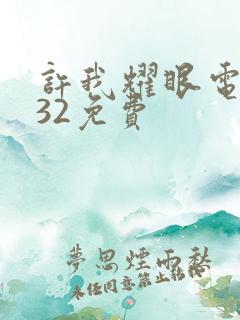 許我耀眼電
32免費
夢思煙雨愁
未任同意禁止轉載